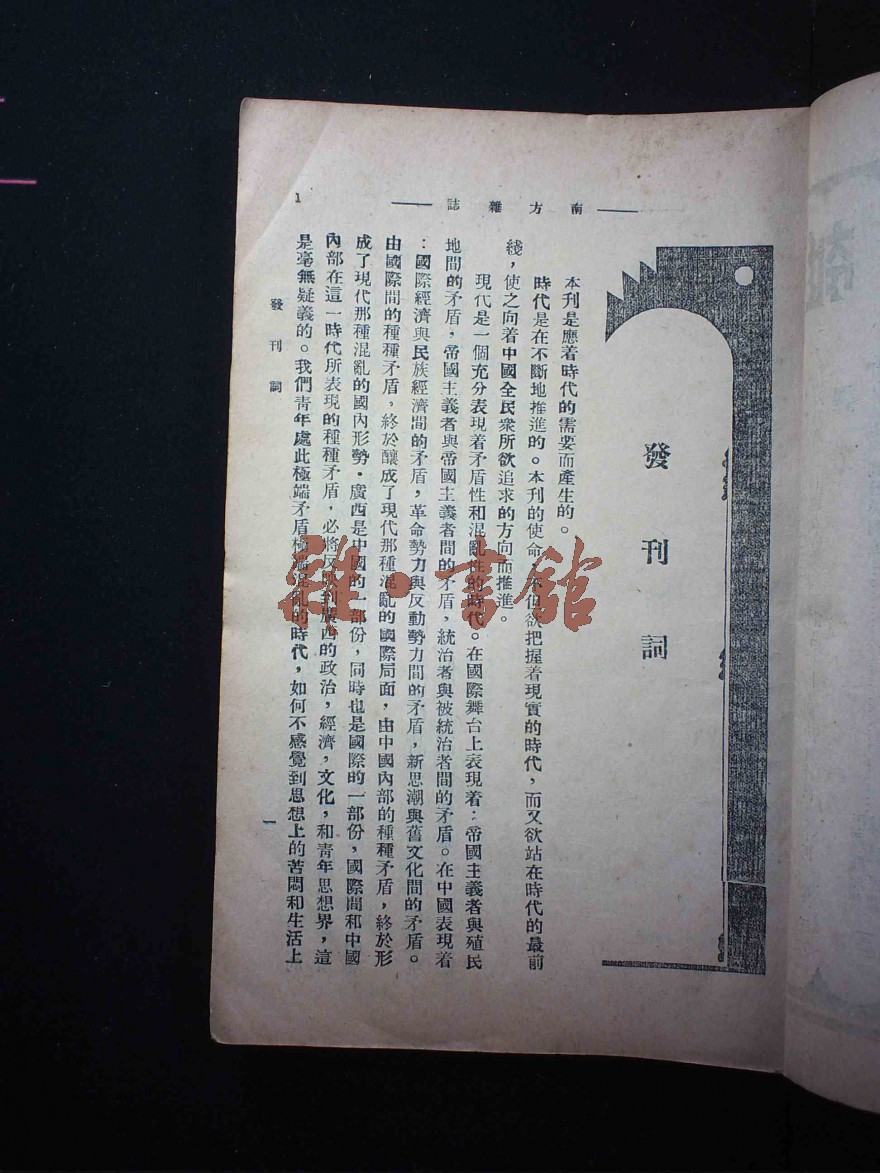 南方雜誌
1
發刊詞
本刊是應着時代的需要而產生的。
時代是在不斷地推進的。本刊的使命，不但欲把握着現實的時代，而又欲站在時代的最前
綫，使之向着中國全民衆所欲追求的方向而推進。
現代是一個充分表現着矛盾性和混亂性的時代。在國際舞台上表現着：帝國主義者與殖民
地間的矛盾，帝國主義者與帝國主義者間的矛盾，統治者與被統治者間的矛盾。在中國表現着
：國際經濟與民族經濟間的矛盾，革命勢力與反動勢力間的矛盾，新思潮與舊文化間的矛盾。
由國際間的種種矛盾，終於釀成了現代那種混亂的國際局面，由中國內部的種種矛盾，終於形
成了現代那種混亂的國內形勢。廣西是中國的一部份，同時也是國際的一部份，國際間和中國
內部在這一時代所表現的種種矛盾，必將反映到廣西的政治，經濟，文化，和靑年思想界，這
是毫無疑義的。我們靑年處此極端矛盾極端混亂的時代，如何不感覺到思想上的苦悶和生活上
發刊詞
一
雜·書館